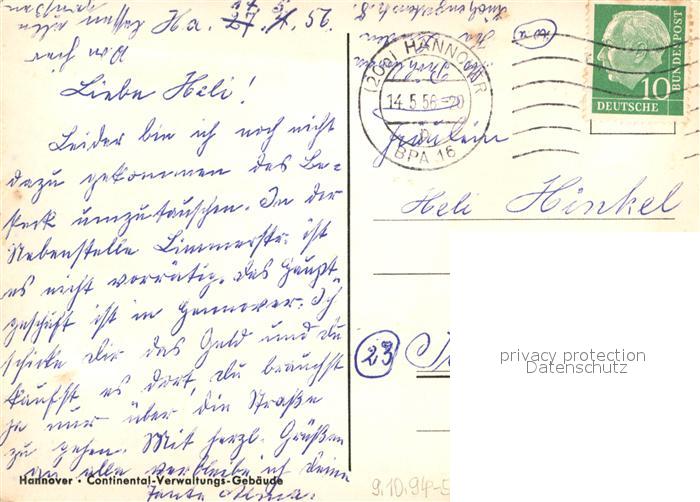 Ha. 27. 4. 56.
14. 5.
Liebe Heli!
Leider bin ich noch nicht
dazu gekommen das Be-
steck umzutauschen. In der
Nebenstelle Limmerstr. ist
es nicht vorrätig. Das Haupt
geschäft ist in Hannover. Ich
schicke Dir das Geld und du
kaufst es dort, du brauchst
ja nur über die Straße
zu gehen. Mit herzl. Grüßen
an alle verbleibe ich Deine
Tante
Hannover · Continental-Verwaltungs-Gebäude
(20a) HANNOVER
14.5.56.-20
BPA 16
10
DEUTSCHE
BUNDESPOST
Fräulein
Heli Hinkel
23
privacy protection
Datenschutz
9.10.94-5